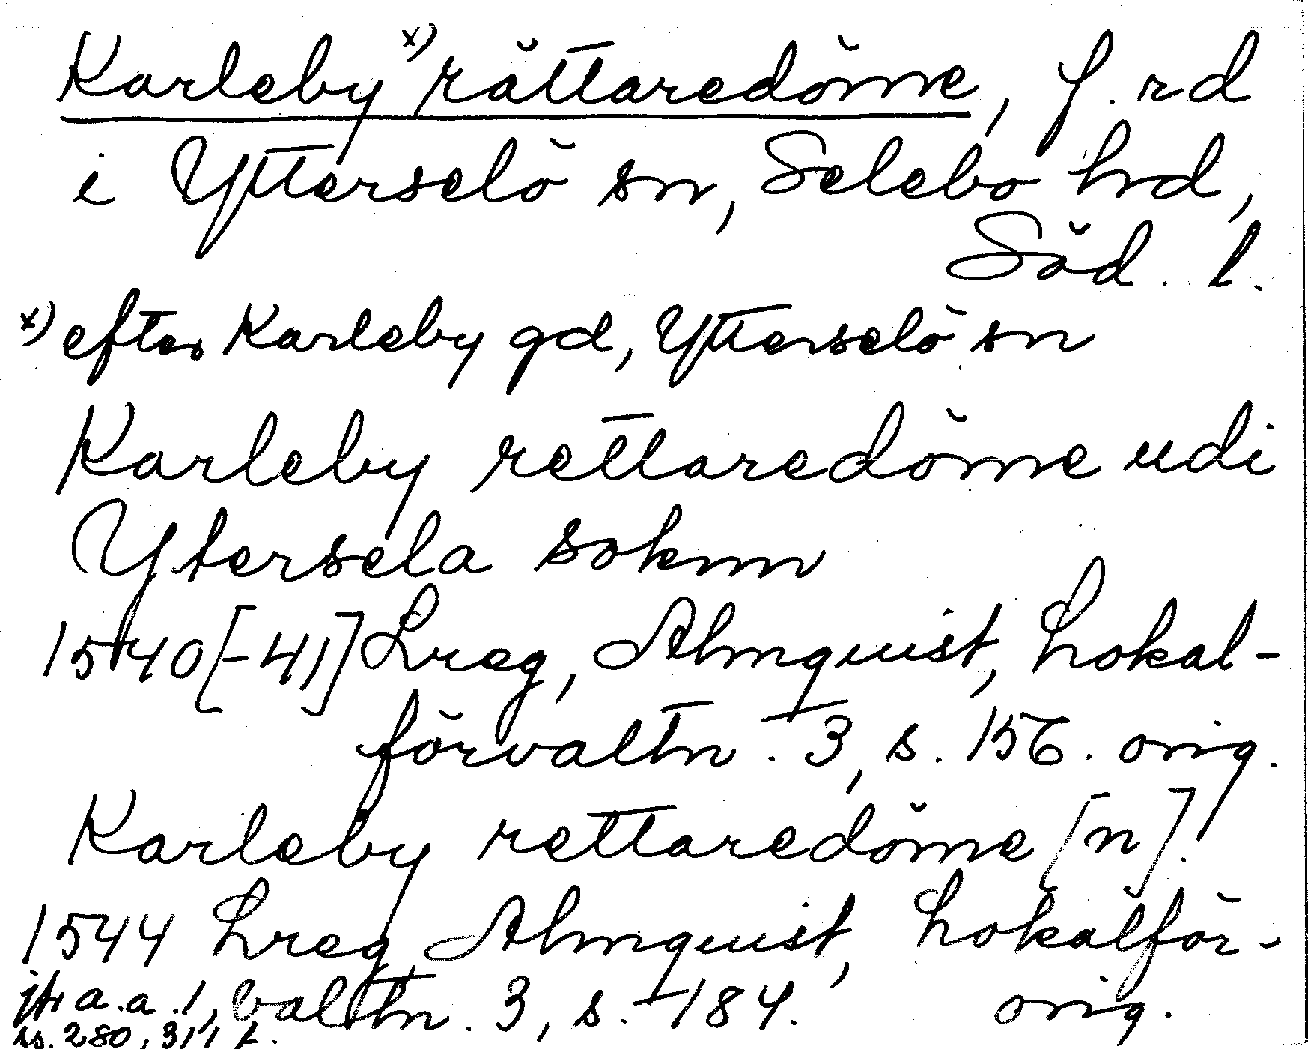 Karleby x) rättaredöme, f.rd
i Ytterselö sn, Selebo hrd,
Söd. l.
x) efter Karleby gd, Ytterselö sn
Karleby rettaredöme udi
Ytersela soknn
1540[-41] Lreg, Almquist, Lokal-
förvaltn. 3, s. 156. orig.
Karleby rettaredöme [n]!
1544 Lreg Almquist, Lokalför-
valtn. 3, s. 184. orig.
jfr a.a. 1,
ss. 280, 311 f.